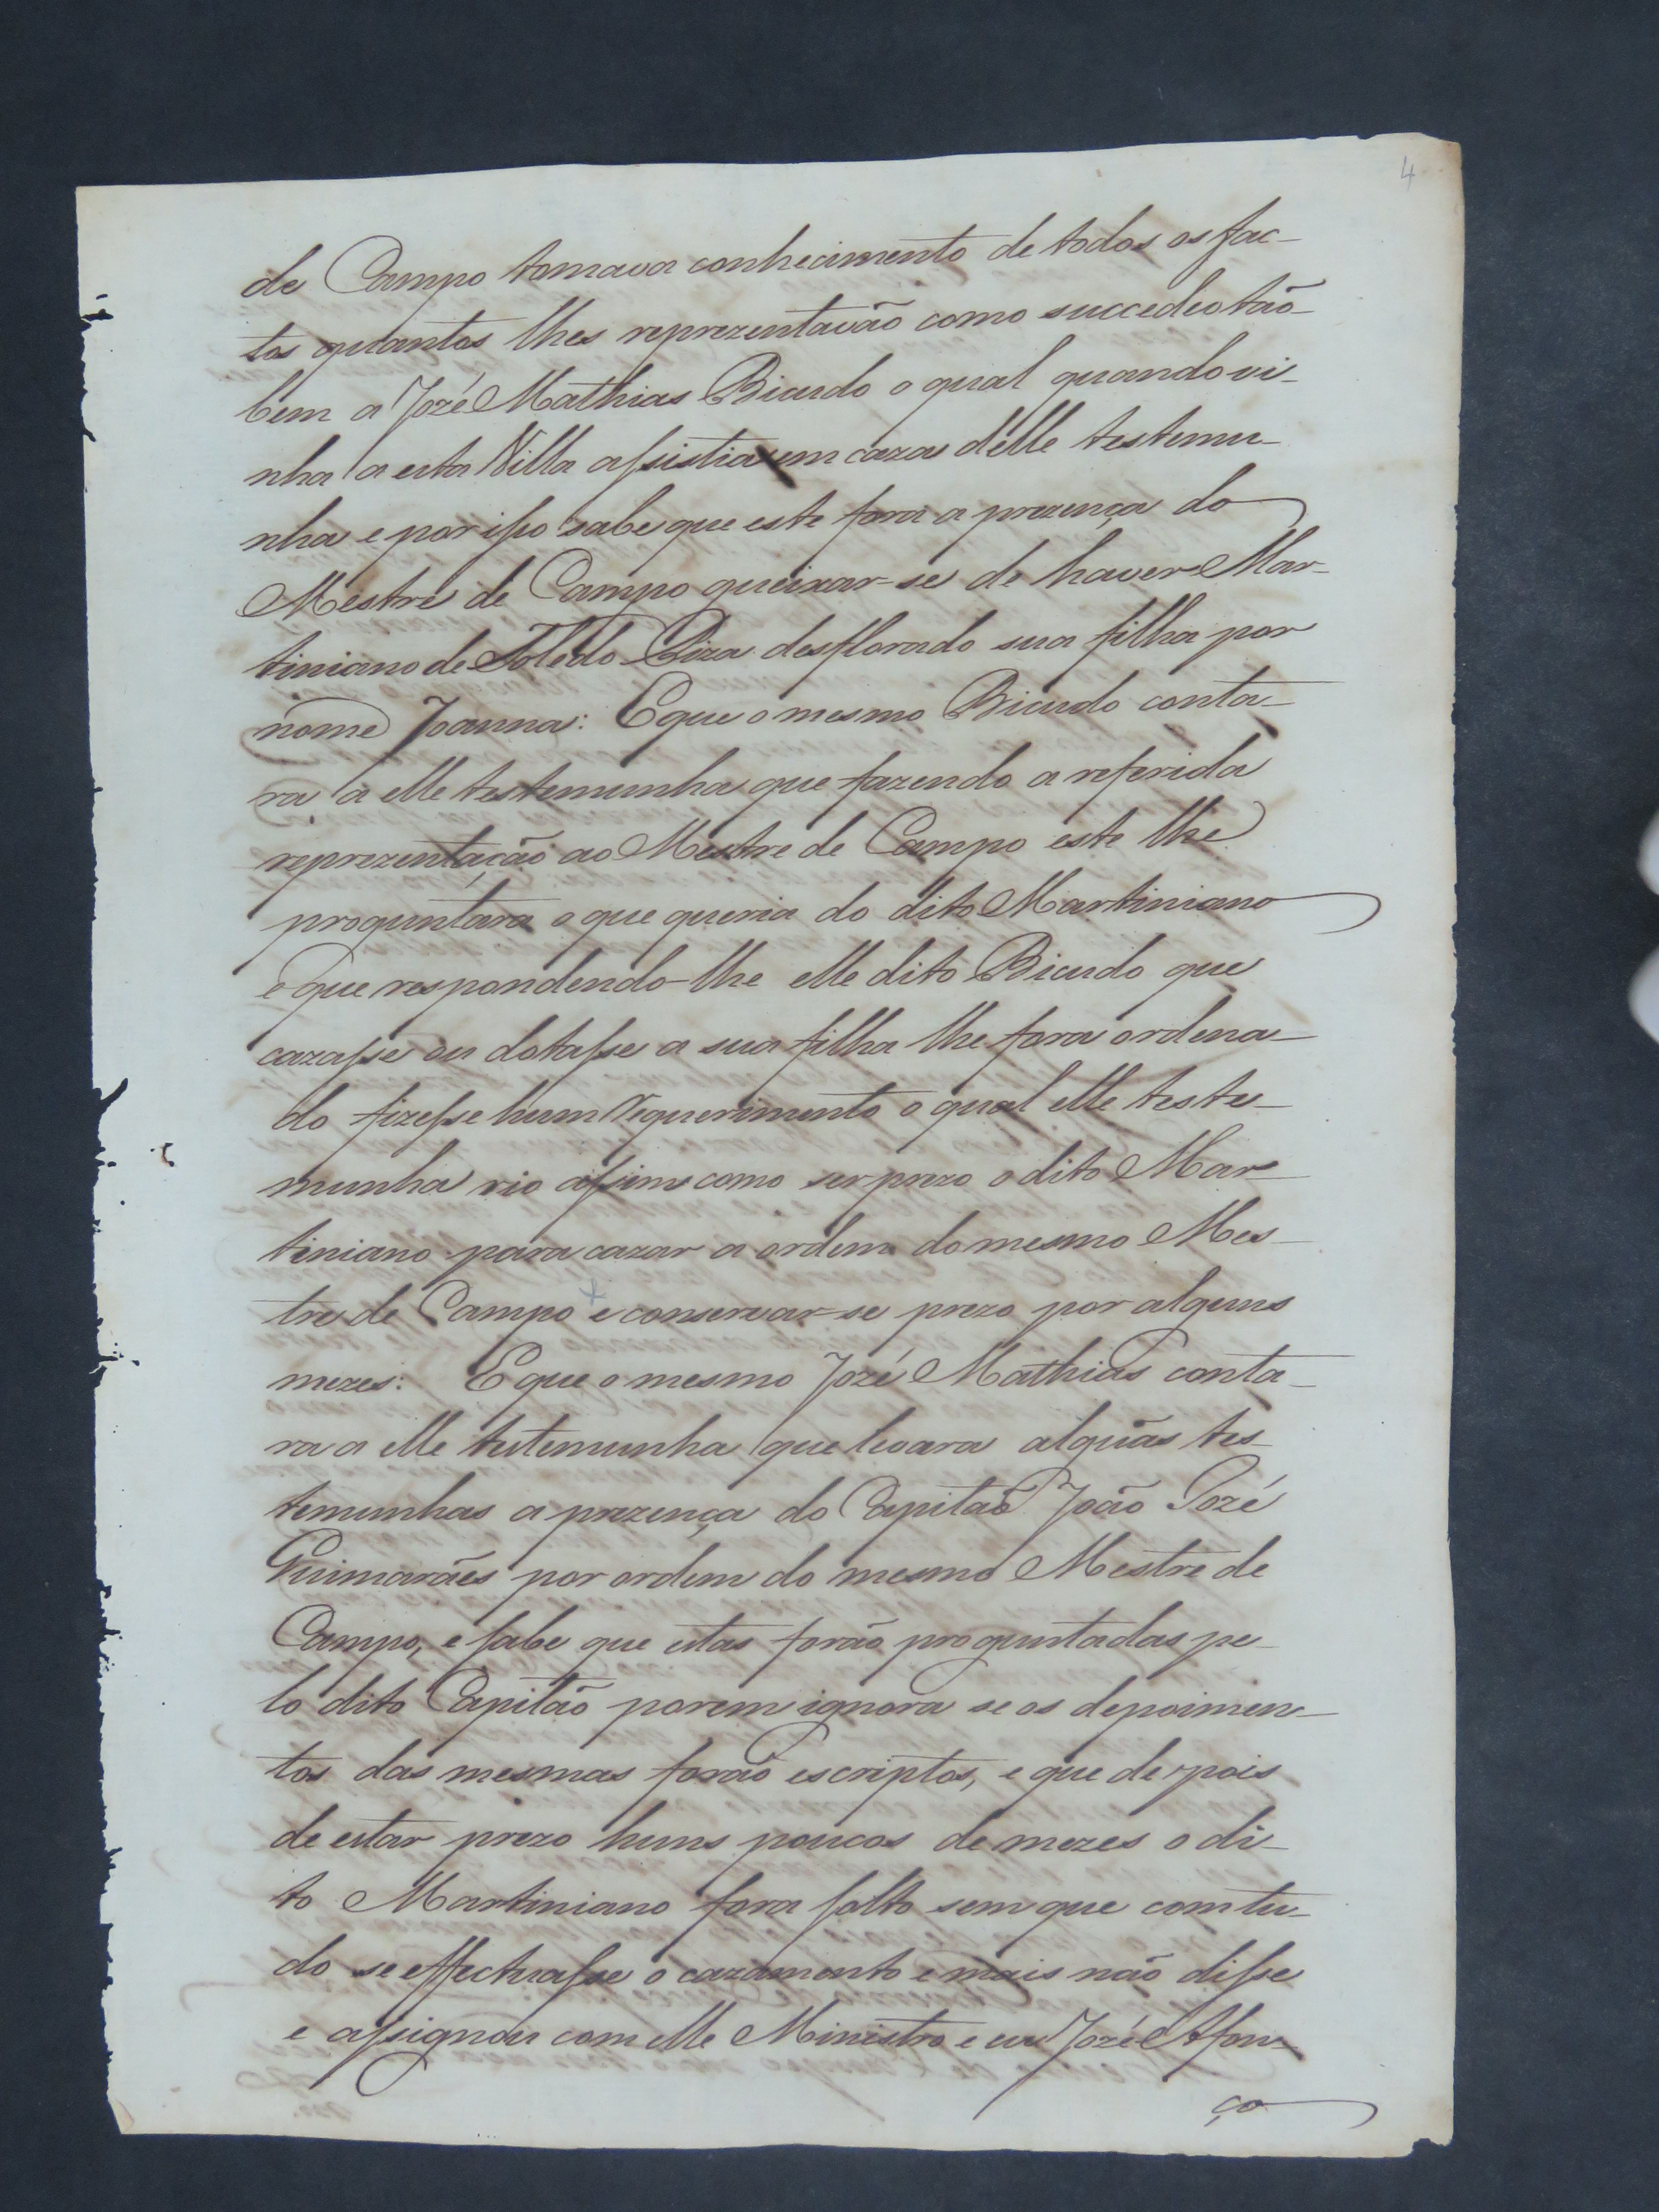 4
de Campo tomava conhecimento de todos os fac-
tos quantos lhes reprezentavão como succedeo tão-
bem a Jozé Mathias Bicudo o qual quando vi-
nha a esta Villa assistia em caza delle testemu-
nha e por isso sabe que este fora a prezença do
Mestre de Campo queixar-se de haver Mar-
tiniano de Toledo Piza desflorado sua filha por
nome Joanna: E que o mesmo Bicudo conta-
ra a elle testemunha que fazendo a referida
reprezentação ao Mestre de Campo este lhe
proguntara o que queria do dito Martiniano
e que respondendo-lhe elle dito Bicudo que
cazasse ou dotasse a sua filha lhe fora ordena-
do fizesse hum requerimento o qual elle teste-
munha vio assim como ser prezo o dito Mar-
tiniano para cazar a ordem do mesmo Mes-
tre de Campo e conservar-se prezo por alguns
mezes: E que o mesmo Jozé Mathias conta-
ra a elle testemunha que levara alguãs tes-
temunhas a prezença do Capitão João Jozé
Guimarães por ordem do mesmo Mestre de
Campo, e sabe que estas forão proguntadas pe-
lo dito Capitão porem ignora se os depoimen-
tos das mesmas forão escriptos, e que de pois
de estar prezo huns poucos de mezes o di-
to Martiniano fora solto sem que com tu-
do se effectuasse o cazamento e mais não disse
e assignou com elle Ministro e eu Jozé Afon-
ço